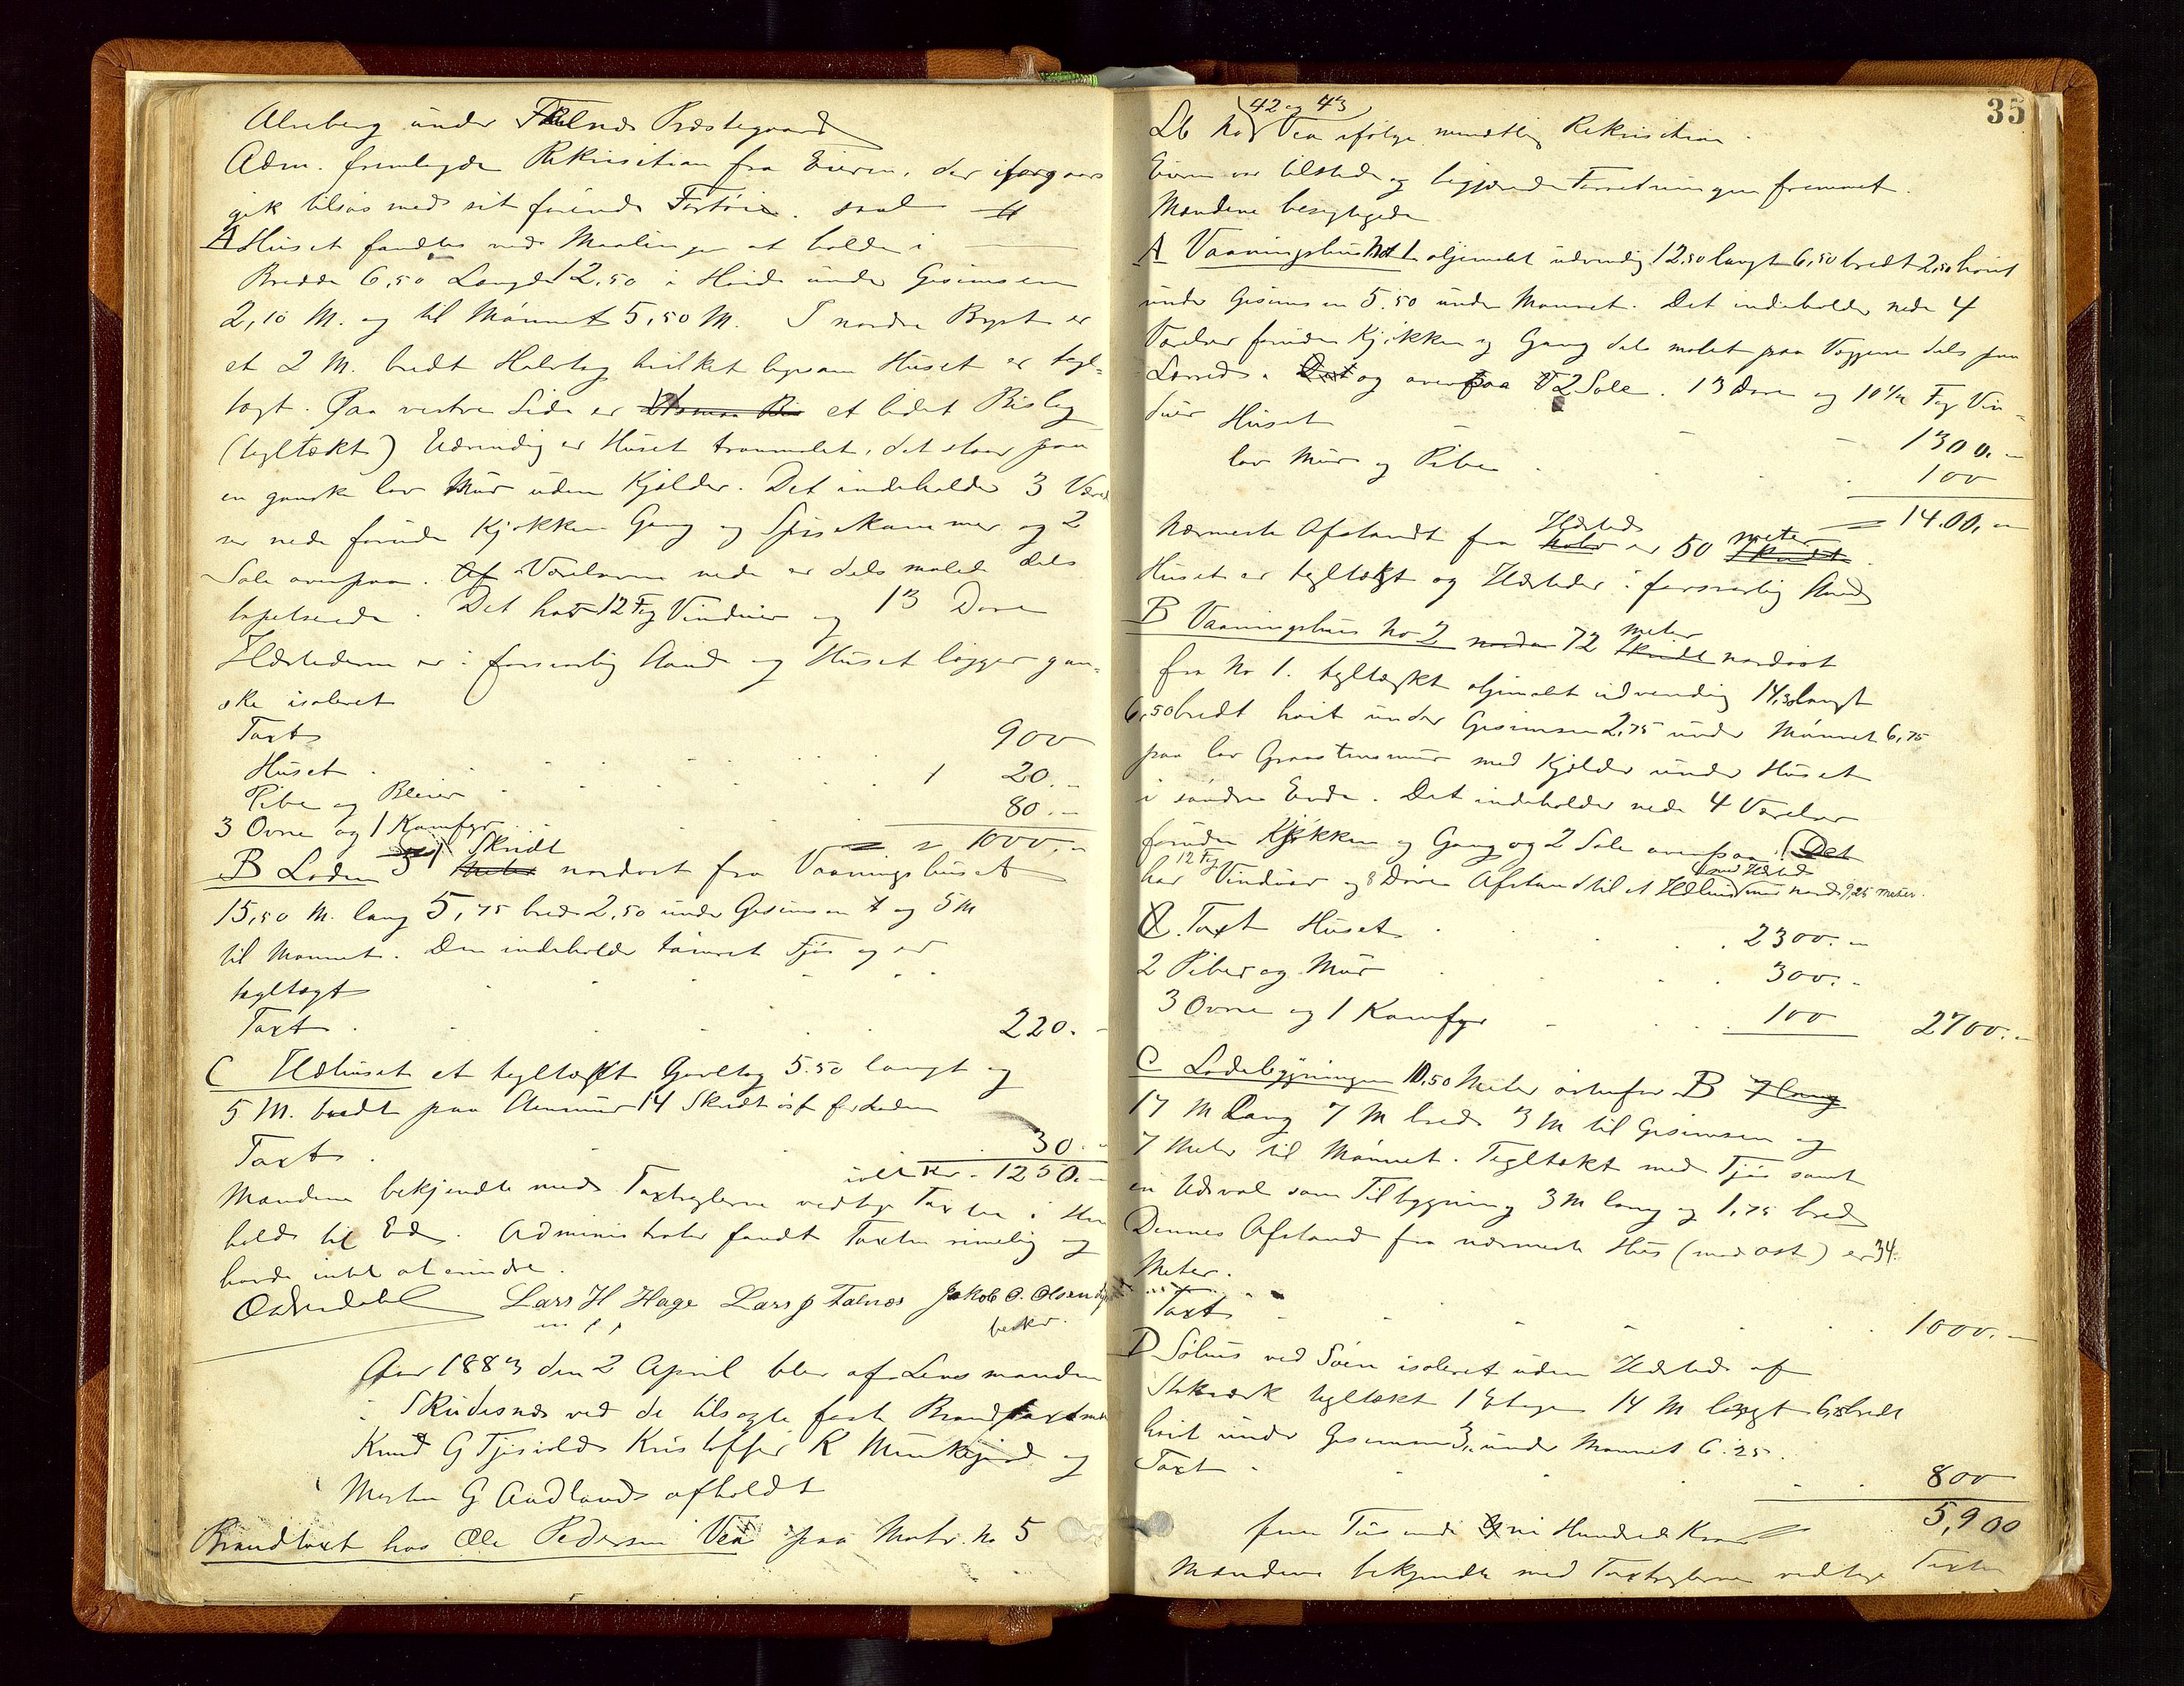 Alseberg under Falnes Præstegaard
Adm. fremlagde Rekvisition fra Eieren, der iforgaars
gik tilsøs med sit førende Fartøi.
A Huset fandtes ved Maalinger at holde i
Bredde 6,50 Længde 12,50 i Høide under Gesimsen
2,10 M. og til Mønnet 5,50 M. I nordre Byst er
et 2 M. bredt Halvtag hvilket ligesom Huset er tegl-
tægt. Paa vestre Side er et lidet Bislag
(tegltækt) Udvendig er Huset tranmalet, det staar paa
en ganske lav Mur uden Kjelder. Det indeholder 3 Værel
ser nede foruden Kjøkken Gang og Spisekammer og 2
Sale ovenpaa. Værelserne nede er dels malede dels
tapetserede. Det har 12 Fag Vinduer og 13 Døre
Ildstederne er i forsvarlig Stand og Huset ligger gan-
ske isoleret
Taxt
Huset 900
Pibe og Bleier 1 20.-
3 Ovne og 1 Komfyr 80.-
= 1000.-
B Laden 31 Skridt nordost fra Vaaningshuset
15,50 M. lang 5,75 bred 2,50 under Gesimsen og 5 M
til Mønnet. Den indeholder tømret Fjøs og er
tegltægt
Taxt 220.-
C Ildhuset et tegltækt Gavltag 5.50 langt og
5 M. bredt paa Stenmur 14 Skridt øst for Laden
Taxt 30.-
ialt Kr. 1250.-
Mændene bekjendte med Taxtreglerne vedtog Taxten i Hen
hold til Ed. Administrator fandt Taxten rimelig og
havde intet at erindre.
Lars H Hage Lars J Falnes Jakob O. Olsen
beskr.
Aar 1883 den 2 April blev af Lensmanden
i Skudesnes ved de tilsagte faste Brandtaxtmænd
Knud G Tjøsvold Kristoffer K Munkejord og
Morten G Audland afholdt
Brandtaxt hos Ole Pedersen Vea paa Matr. No 5
35
42 og 43
Lb No Vea ifølge mundtlig Rekvisition.
Eieren var tilstede og begjærede Forretningen fremmet.
Mændene besigtigede
A Vaaningshus No 1 oljemalet udvendig 12,50 langt 6,50 bredt 2,50 høit
under Gesimsen 5.50 under Mønnet. Det indeholder nede 4
Værelser foruden Kjøkken og Gang dels malet paa Væggene dels paa
Lærred. og ovenpaa 2 Sale. 13 Døre og 10 1/2 Fag Vin-
duer Huset 1300.-
lav Mur og Pibe 100
= 14.00.-
Nærmeste Afstandt fra Ildsted er 50 meter
Huset er tegltækt og Ildsteder i forsvarlig Stand
B Vaaningshus No 2 72 meter nordost
fra No 1. tegltækt oljemalet udvendig 14,30 langt
6,50 bredt høit under Gesimsen 2,75 under Mønnet 6,75
paa lav Graastensmur med Kjelder under Huset
i søndre Ende. Det indeholder nede 4 Værelser
foruden Kjøkken og Gang og 2 Sale ovenpaa. Det
har 12 Fag Vinduer og 8 Døre Afstand til et Ildhus med Ildsted mod nord 9,25 Meter.
Taxt Huset 2300.-
2 Piber og Mur 300.-
3 Ovne og 1 Komfyr 100 2700.-
C Ladebygningen 10,50 Meter østenfor B
17 M lang 7 M bred 3 M til Gesimsen og
7 Meter til Mønnet. Tegltækt med Fjøs samt
en Udsval som Tilbygning 3 M lang og 1,75 bred
Dennes Afstand fra nærmeste Hus (mod ost) er 34
Meter.
Taxt 1000.-
D Søhus ved Søen isoleret uden Ildsted af
Staværk tegltækt 1 Etage 14 M langt bredt
høit under Gesimsen 3 under Mønnet 6.25.
Taxt 800
5,900
fem Tusinde ni Hundrede Kroner
Mændene bekjendte med Taxtreglerne vedtoge Taxten